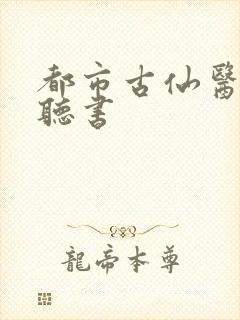 都市古仙醫
聽書
龍帝本尊